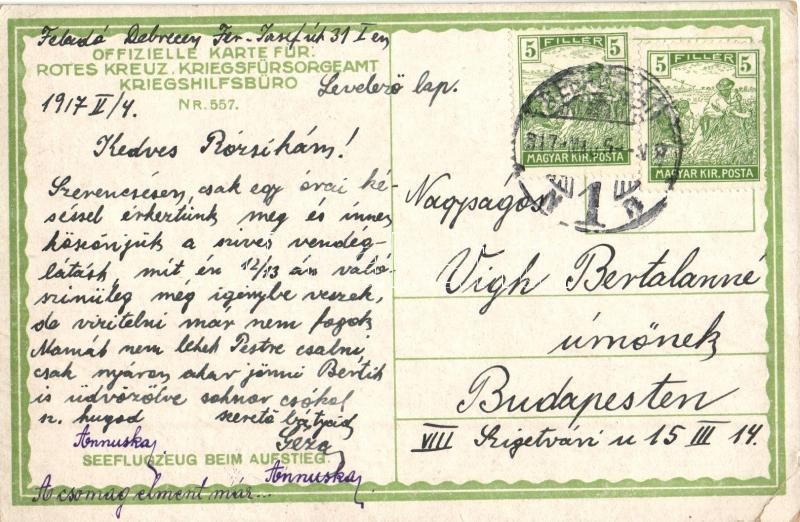 Feladó Debrecen Fer. Jósef út 31 I em
OFFIZIELLE KARTE FÜR:
ROTES KREUZ, KRIEGSFÜRSORGEAMT
KRIEGSHILFSBÜRO
NR. 557.
Levelező lap.
1917 V/4.
Kedves Rózsikám!
Szerencsésen, csak egy órai ké-
séssel érkeztünk meg és innen
köszönjük a szives vendég-
látást mit én 12/13 án való-
szinüleg még igénybe veszek,
de viritelni már nem fogok
Mamát nem lehet Pestre csalni
csak nyáron akar jönni Bertit
is üdvözölve sokszor csókol
sz. hugod szerető bátyád
Annuska Géza
SEEFLUGZEUG BEIM AUFSTIEG.
Annuska
A csomag elment már...
5 FILLÉR 5
MAGYAR KIR. POSTA
5 FILLÉR 5
MAGYAR KIR. POSTA
DEBRECZEN
1
Nagyságos
Vigh Bertalanné
úrnőnek
Budapesten
VIII Szigetvári u 15 III 14.